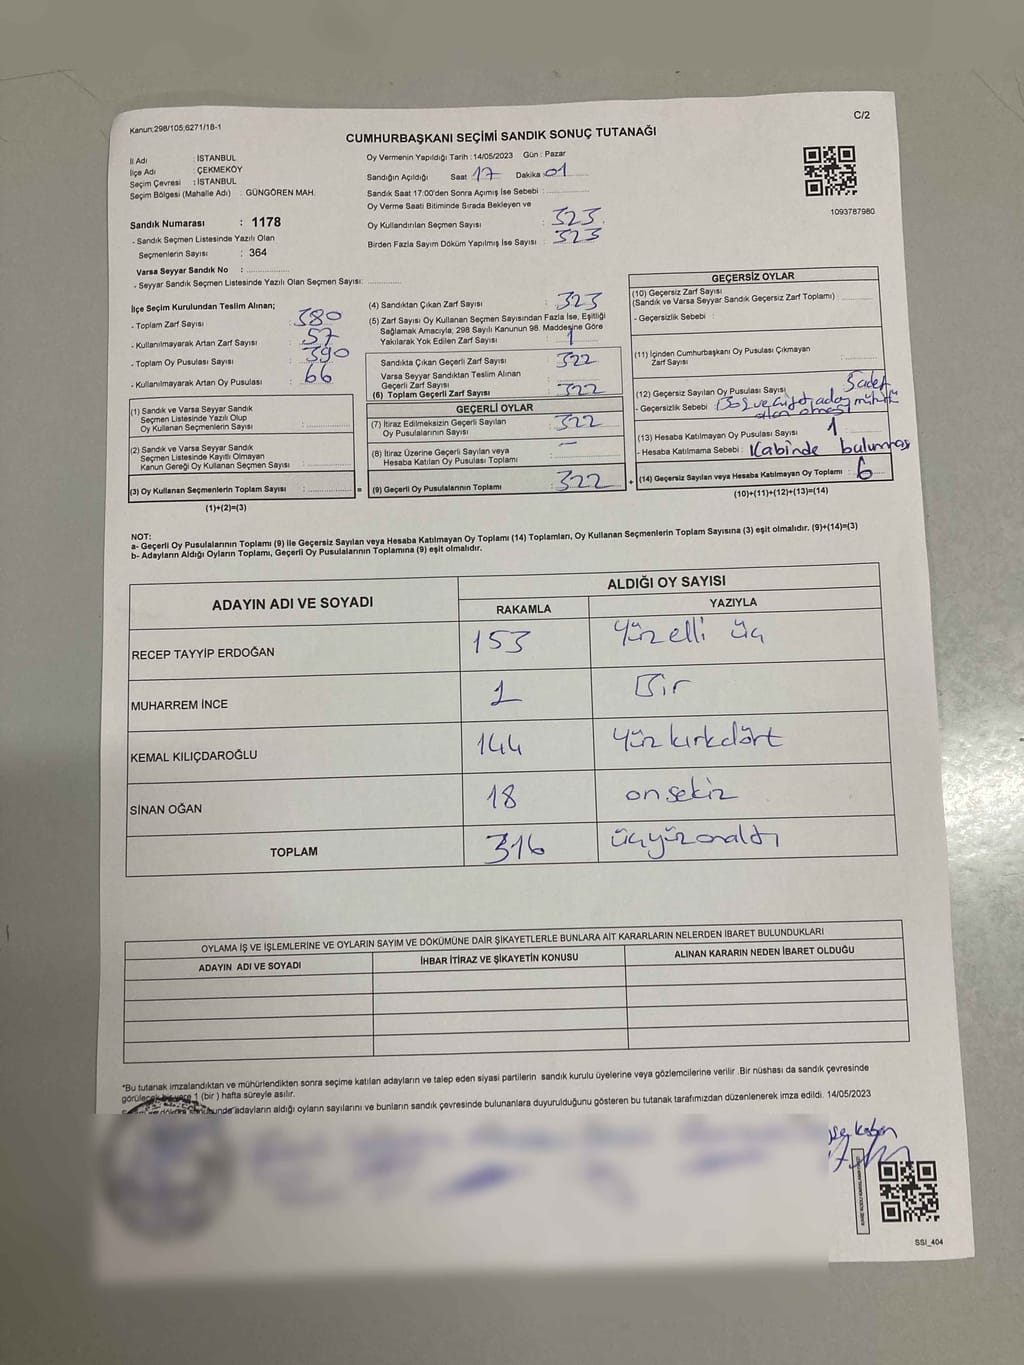 Kanun;298/105;6271/18-1
C/2
CUMHURBAŞKANI SEÇİMİ SANDIK SONUÇ TUTANAĞI
İl Adı : İSTANBUL
İlçe Adı : ÇEKMEKÖY
Seçim Çevresi : İSTANBUL
Seçim Bölgesi (Mahalle Adı) : GÜNGÖREN MAH.
Oy Vermenin Yapıldığı Tarih : 14/05/2023 Gün : Pazar
Sandığın Açıldığı Saat 17 Dakika : 01
Sandık Saat 17:00'den Sonra Açımış İse Sebebi :
Oy Verme Saati Bitiminde Sırada Bekleyen ve
Oy Kullandırılan Seçmen Sayısı : 323
Birden Fazla Sayım Döküm Yapılmış İse Sayısı : 323
1093787980
Sandık Numarası : 1178
- Sandık Seçmen Listesinde Yazılı Olan
Seçmenlerin Sayısı : 364
Varsa Seyyar Sandık No :
- Seyyar Sandık Seçmen Listesinde Yazılı Olan Seçmen Sayısı:
İlçe Seçim Kurulundan Teslim Alınan;
- Toplam Zarf Sayısı : 380
- Kullanılmayarak Artan Zarf Sayısı : 57
- Toplam Oy Pusulası Sayısı : 390
- Kullanılmayarak Artan Oy Pusulası : 66
(1) Sandık ve Varsa Seyyar Sandık
Seçmen Listesinde Yazılı Olup
Oy Kullanan Seçmenlerin Sayısı :
(2) Sandık ve Varsa Seyyar Sandık
Seçmen Listesinde Kayıtlı Olmayan
Kanun Gereği Oy Kullanan Seçmen Sayısı :
(3) Oy Kullanan Seçmenlerin Toplam Sayısı : =
(1)+(2)=(3)
(4) Sandıktan Çıkan Zarf Sayısı : 323
(5) Zarf Sayısı Oy Kullanan Seçmen Sayısından Fazla İse, Eşitliği
Sağlamak Amacıyla; 298 Sayılı Kanunun 98. Maddesine Göre
Yakılarak Yok Edilen Zarf Sayısı : 1
Sandıkta Çıkan Geçerli Zarf Sayısı : 322
Varsa Seyyar Sandıktan Teslim Alınan
Geçerli Zarf Sayısı :
(6) Toplam Geçerli Zarf Sayısı : 322
GEÇERLİ OYLAR
(7) İtiraz Edilmeksizin Geçerli Sayılan
Oy Pusulalarının Sayısı : 322
(8) İtiraz Üzerine Geçerli Sayılan veya
Hesaba Katılan Oy Pusulası Toplamı : —
(9) Geçerli Oy Pusulalarının Toplamı : 322 +
GEÇERSİZ OYLAR
(10) Geçersiz Zarf Sayısı
(Sandık ve Varsa Seyyar Sandık Geçersiz Zarf Toplamı) :
- Geçersizlik Sebebi :
(11) İçinden Cumhurbaşkanı Oy Pusulası Çıkmayan
Zarf Sayısı :
(12) Geçersiz Sayılan Oy Pusulası Sayısı : 5 adet
- Geçersizlik Sebebi : Boş ve
(13) Hesaba Katılmayan Oy Pusulası Sayısı : 1
- Hesaba Katılmama Sebebi : Kabinde bulunması
(14) Geçersiz Sayılan veya Hesaba Katılmayan Oy Toplamı : 6
(10)+(11)+(12)+(13)=(14)
NOT:
a- Geçerli Oy Pusulalarının Toplamı (9) ile Geçersiz Sayılan veya Hesaba Katılmayan Oy Toplamı (14) Toplamları, Oy Kullanan Seçmenlerin Toplam Sayısına (3) eşit olmalıdır. (9)+(14)=(3)
b- Adayların Aldığı Oyların Toplamı, Geçerli Oy Pusulalarının Toplamına (9) eşit olmalıdır.
ADAYIN ADI VE SOYADI
ALDIĞI OY SAYISI
RAKAMLA YAZIYLA
RECEP TAYYİP ERDOĞAN 153 Yüz elli üç
MUHARREM İNCE 1 Bir
KEMAL KILIÇDAROĞLU 144 Yüz kırkdört
SİNAN OĞAN 18 onsekiz
TOPLAM 316 üçyüzonaltı
OYLAMA İŞ VE İŞLEMLERİNE VE OYLARIN SAYIM VE DÖKÜMÜNE DAİR ŞİKAYETLERLE BUNLARA AİT KARARLARIN NELERDEN İBARET BULUNDUKLARI
ADAYIN ADI VE SOYADI İHBAR İTİRAZ VE ŞİKAYETİN KONUSU ALINAN KARARIN NEDEN İBARET OLDUĞU
*Bu tutanak imzalandıktan ve mühürlendikten sonra seçime katılan adayların ve talep eden siyasi partilerin sandık kurulu üyelerine veya gözlemcilerine verilir .Bir nüshası da sandık çevresinde
görülecek bir yere 1 (bir ) hafta süreyle asılır.
adayların aldığı oyların sayılarını ve bunların sandık çevresinde bulunanlara duyurulduğunu gösteren bu tutanak tarafımızdan düzenlenerek imza edildi. 14/05/2023
SSI_404